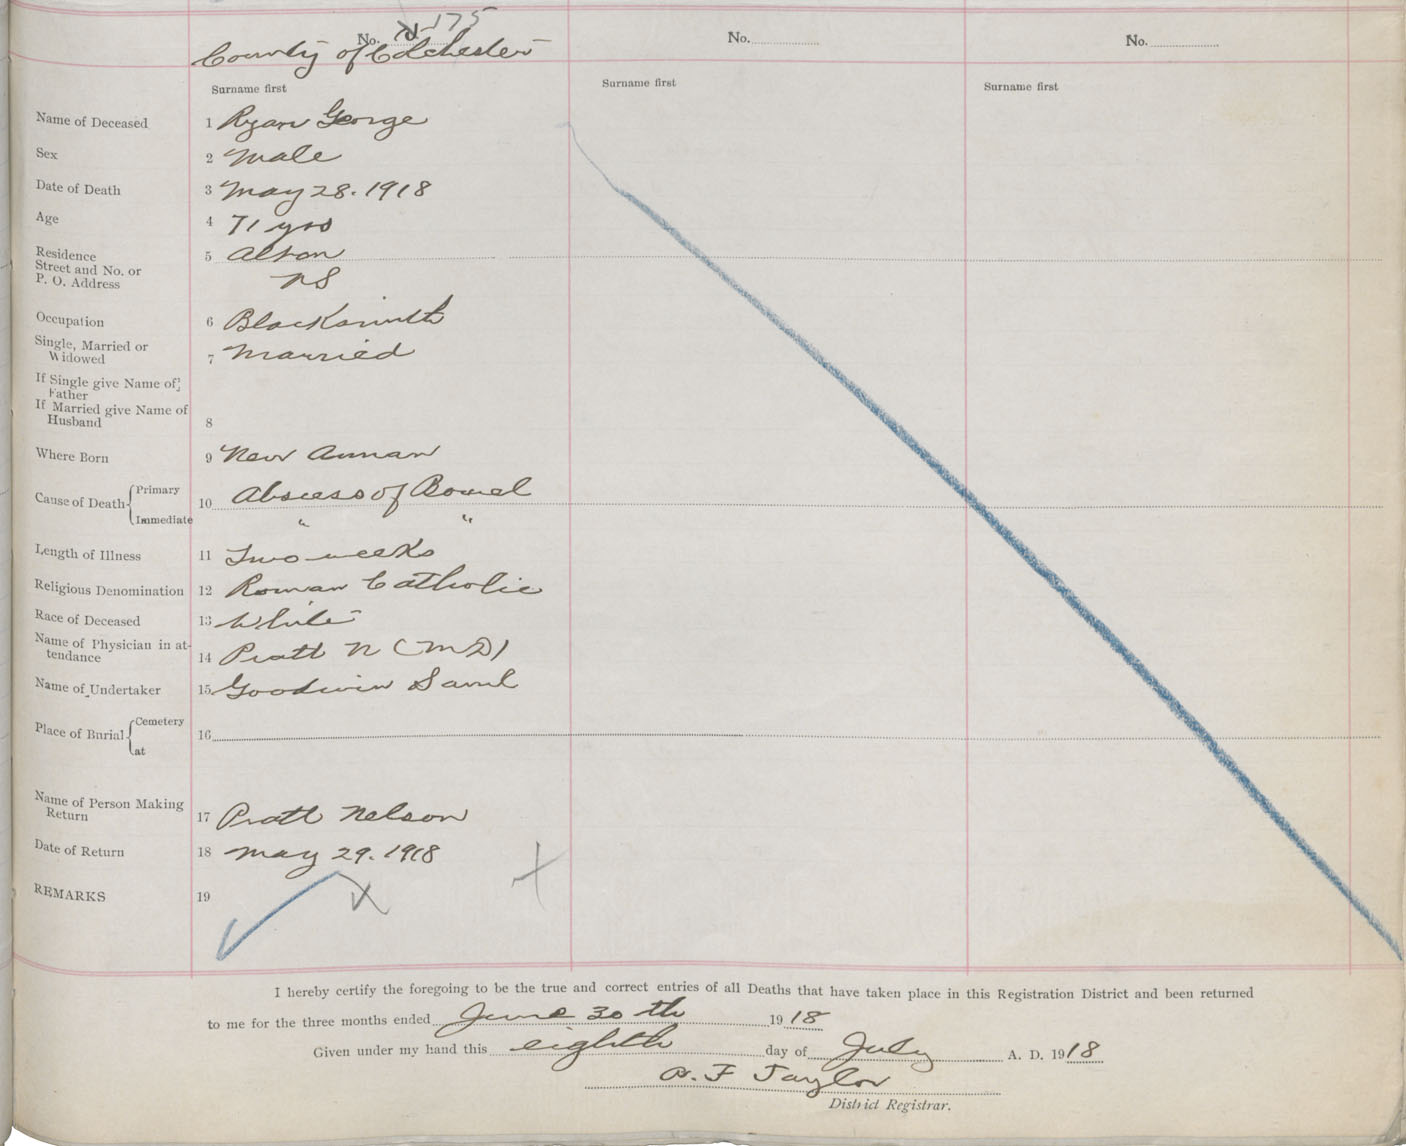 No. 175 No. No.
County of Colchester
Surname first Surname first Surname first
Name of Deceased 1 Ryan George
Sex 2 Male
Date of Death 3 May 28. 1918
Age 4 71 yrs
Residence 5 Alton
Street and No. or
P. O. Address NS
Occupation 6 Blacksmith
Single, Married or
Widowed 7 Married
If Single give Name of
Father
If Married give Name of
Husband 8
Where Born 9 New Annan
Cause of Death Primary 10 Abscess of Bowel
Immediate " "
Length of Illness 11 Two weeks
Religious Denomination 12 Roman Catholic
Race of Deceased 13 White
Name of Physician in at-
tendance 14 Pratt N (MD)
Name of Undertaker 15 Goodwin Saml
Place of Burial Cemetery 16
at
Name of Person Making
Return 17 Pratt Nelson
Date of Return 18 May 29. 1918
REMARKS 19
I hereby certify the foregoing to be the true and correct entries of all Deaths that have taken place in this Registration District and been returned
to me for the three months ended June 30th 1918
Given under my hand this eighth day of July A. D. 1918
F Taylor
District Registrar.